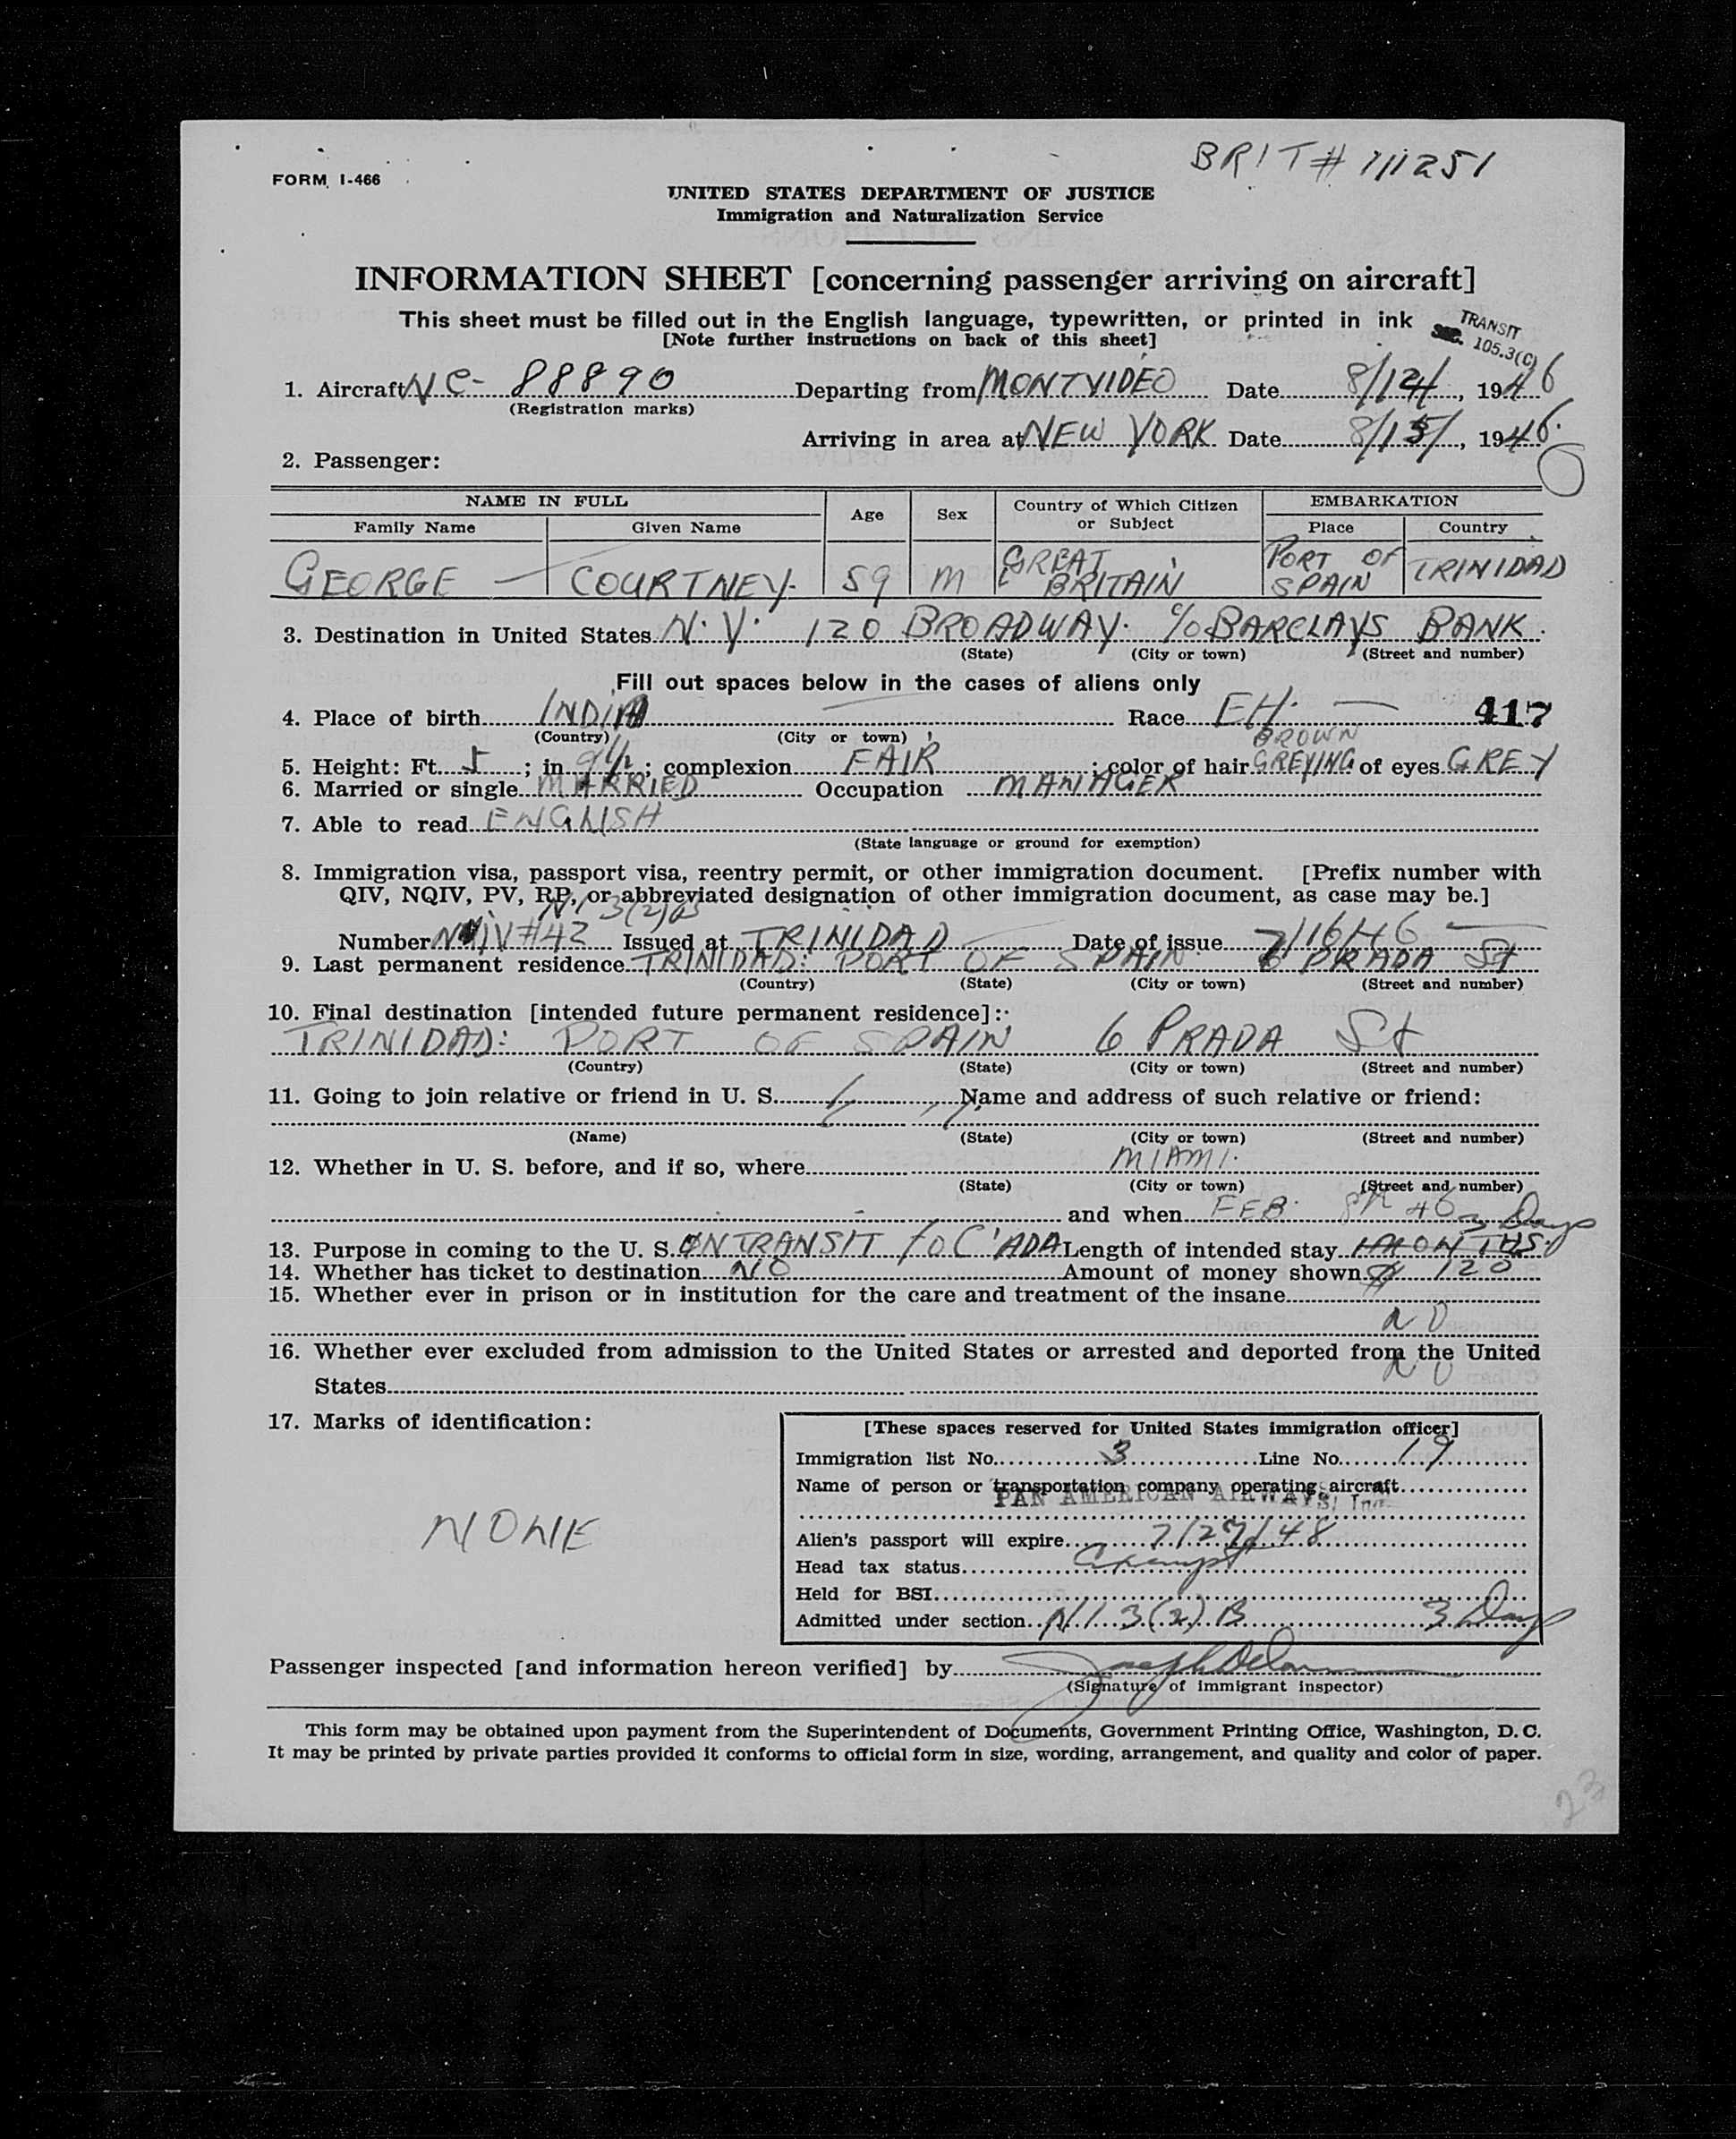 BRIT # 111251
FORM I-466
UNITED STATES DEPARTMENT OF JUSTICE
Immigration and Naturalization Service
INFORMATION SHEET [concerning passenger arriving on aircraft]
This sheet must be filled out in the English language, typewritten, or printed in ink
[Note further instructions on back of this sheet]
TRANSIT
SEC. 105.3(C)
1. Aircraft NC- 88890 Departing from MONTVIDEO Date 8/14, 1946
(Registration marks)
Arriving in area at NEW YORK Date 8/15/, 1946.
2. Passenger:
NAME IN FULL Age Sex Country of Which Citizen or Subject EMBARKATION
Family Name Given Name Place Country
GEORGE — COURTNEY. 59 M GREAT BRITAIN PORT OF SPAIN TRINIDAD
3. Destination in United States N.Y. 120 BROADWAY. c/o BARCLAYS BANK.
(State) (City or town) (Street and number)
Fill out spaces below in the cases of aliens only
4. Place of birth INDIA Race EH. — 417
(Country) (City or town)
BROWN
5. Height: Ft. 5; in 9 1/2; complexion FAIR; color of hair GREYING of eyes GREY
6. Married or single MARRIED Occupation MANAGER
7. Able to read ENGLISH
(State language or ground for exemption)
8. Immigration visa, passport visa, reentry permit, or other immigration document. [Prefix number with
QIV, NQIV, PV, RP, or abbreviated designation of other immigration document, as case may be.]
3(2)
Number #42 Issued at TRINIDAD Date of issue 7/16/46
9. Last permanent residence TRINIDAD: PORT OF SPAIN 6 PRADA St
(Country) (State) (City or town) (Street and number)
10. Final destination [intended future permanent residence]:
TRINIDAD: PORT OF SPAIN 6 PRADA St
(Country) (State) (City or town) (Street and number)
11. Going to join relative or friend in U. S. Name and address of such relative or friend:
(Name) (State) (City or town) (Street and number)
12. Whether in U. S. before, and if so, where MIAMI.
(State) (City or town) (Street and number)
and when FEB. 46
3 Days
13. Purpose in coming to the U. S. INTRANSIT to C'ADA Length of intended stay MONTHS.
14. Whether has ticket to destination NO Amount of money shown $ 120
15. Whether ever in prison or in institution for the care and treatment of the insane
NO
16. Whether ever excluded from admission to the United States or arrested and deported from the United
States NO
17. Marks of identification:
NONE
[These spaces reserved for United States immigration officer]
Immigration list No. 3 Line No. 19
Name of person or transportation company operating aircraft
PAN AMERICAN AIRWAYS, Inc.
Alien's passport will expire 7/27/48
Head tax status Exempt
Held for BSI
Admitted under section 3(2) B 3 Days
Passenger inspected [and information hereon verified] by Joseph
(Signature of immigrant inspector)
This form may be obtained upon payment from the Superintendent of Documents, Government Printing Office, Washington, D. C.
It may be printed by private parties provided it conforms to official form in size, wording, arrangement, and quality and color of paper.
23